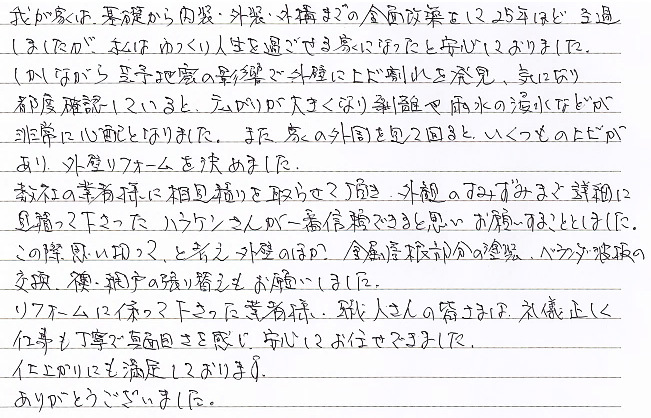 我が家は、基礎から内装・外装・外構までの全面改築をして25年ほど経過
しましたが、私はゆっくり人生を過ごせる家になったと安心しておりました。
しかしながら 芸予地震の影響で外壁にヒビ割れを発見、気になり
都度確認していると、広がりが大きくなり剥離や雨水の浸水などが
非常に心配となりました。また 家の外周を見て回ると、いくつものヒビが
あり、外壁リフォームを決めました。
数社の業者様に相見積りを取らせて頂き、外観のすみずみまで詳細に
見積って下さった ハラケンさんが一番信頼できると思い お願いすることとしました。
この際 思い切って、と考え 外壁のほか、金属屋根部分の塗装、ベランダ波板の
交換、襖・網戸の張り替えもお願いしました。
リフォームに係って下さった業者様・職人さんの皆さまは、礼儀正しく
仕事も丁寧で真面目さを感じ、安心してお任せできました。
仕上がりにも満足しております。
ありがとうございました。